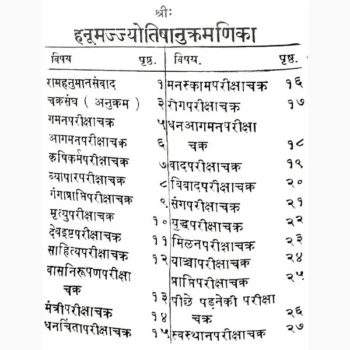 श्रीः
हनूमज्ज्योतिषानुक्रमणिका
विषय पृष्ठ.
रामहनुमानसंवाद १
चक्रसंघ ( अनुक्रम ) ३
गमनपरीक्षाचक्र ५
आगमनपरीक्षाचक्र ६
कृषिकर्मपरीक्षाचक्र ७
व्यापारपरीक्षाचक्र ८
गंगाप्राप्तिपरीक्षाचक्र ९
मृत्युपरीक्षाचक्र १०
देवदृष्टपरीक्षाचक्र ११
साहित्यपरीक्षाचक्र १२
वासनिरूपणपरीक्षा
चक्र १३
मंत्रीपरीक्षाचक्र १४
धनचिंतापरीक्षाचक्र १५
विषय. पृष्ठ.
मनस्कामपरीक्षाचक्र १६
रोगपरीक्षाचक्र १७
धनआगमनपरीक्षा
चक्र १८
वादपरीक्षाचक्र १९
विवादपरीक्षाचक्र २०
संगपरीक्षाचक्र २१
युद्धपरीक्षाचक्र २२
मिलनपरीक्षाचक्र २३
याञ्चापरीक्षाचक्र २४
प्राप्तिपरीक्षाचक्र २५
पीछे पड़नेकी परीक्षा
चक्र २६
स्वस्थानपरीक्षाचक्र २७